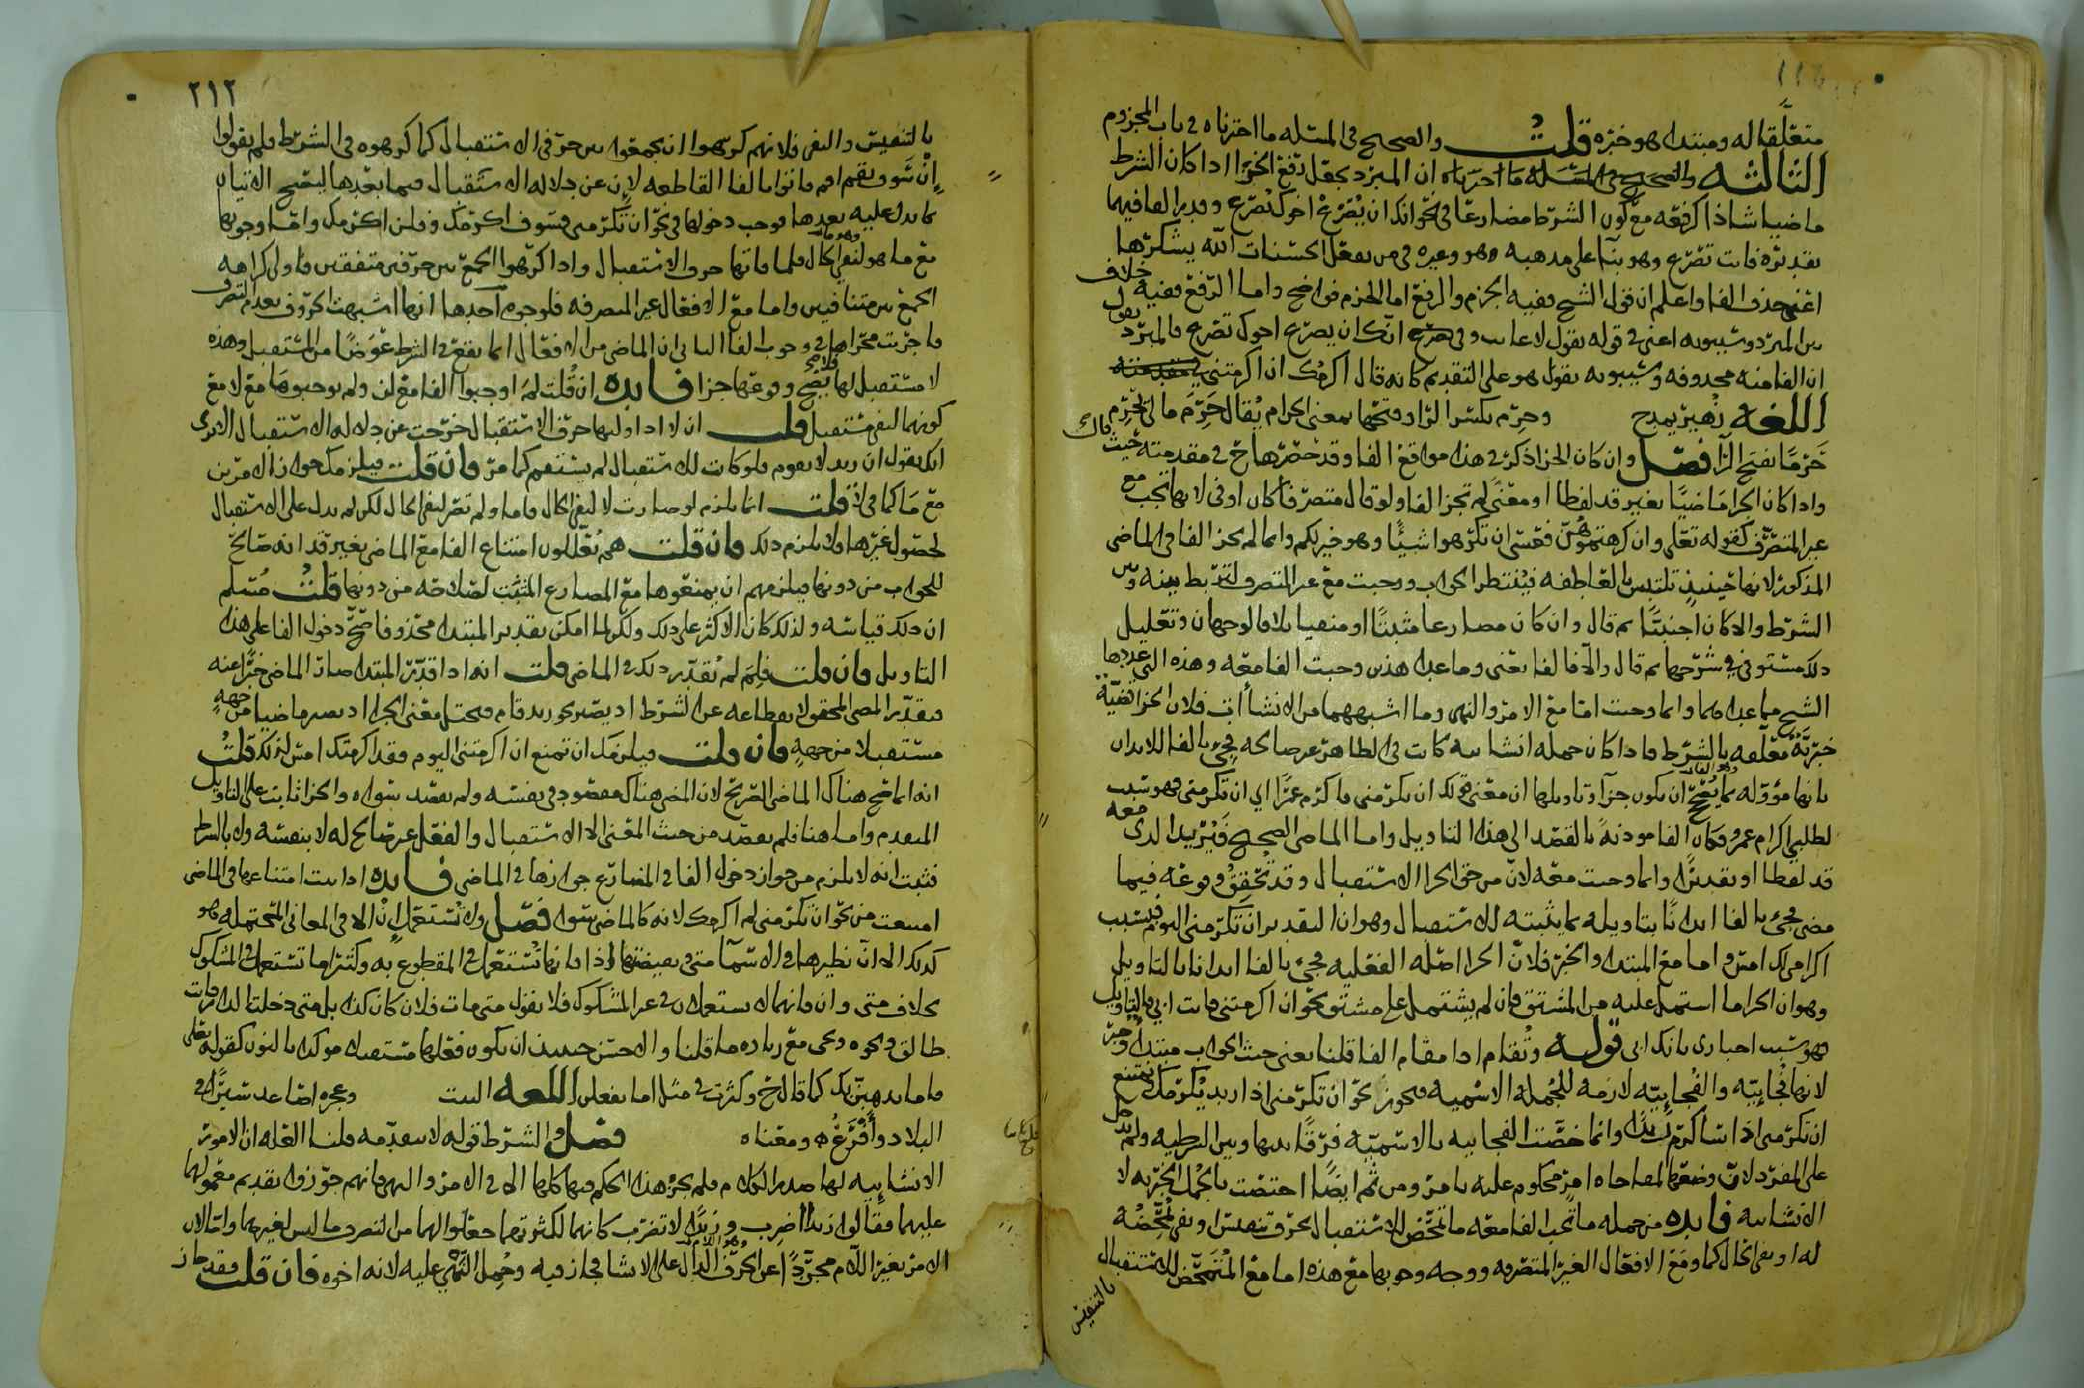 متعلقا له ومبتدا هو خبره قلت والصحيح في المسئله ما اخترناه في باب المجزوم
الثالثه ان المبرد يجعل رفع الجزا اذا كان الشرط
ماضيا شاذا كرفعه مع كون الشرط مضارعا في نحو انك ان يصرع اخوك تصرع ويقدر الفا فيهما
تقديره فانت تصرع وهو بنا على مذهبه وهو وغيره في من يفعل الحسنات الله يشكرها
اعني حذف الفا واعلم ان قول الشيخ ففيه الجزم والرفع اما الجزم فواضح واما الرفع ففيه خلاف
بين المبرد وسيبويه اعني في قوله يقول لا غايب وفي انك ان يصرع اخوك تصرع فالمبرد يقول
ان الفا منه محذوفه وسيبويه يقول هو على التقديم كانه قال اكرمك ان اكرمتني
اللغه زهير يمدح وحرم بكسر الرا وفتحها بمعنى الحرام يقال حرم مالي يحرم
حرما بفتح الرا فصل وان كان الجزا ذكر في هذا مواقع الفا وقد حصرها خ في مقدمته حيث قال
واذا كان الجزا ماضيا بغير قد لفظا او معنى لم تجز الفا ولو قال متصرفا كان اوفى لانها تجب مع
غير المتصرف كقوله تعالى وان كرهتموهن فعسى ان تكرهوا شيئا وهو خير لكم وانما لم يجز الفا في الماضي
المذكور لانها حينئذ تلتبس بالعاطفه فينتظر الجواب ووجبت مع غير المتصرف لتربط بينه وبين
الشرط والا كان اجنبيا ثم قال وان كان مضارعا مثبتا او منفيا بلا فالوجهان وتعليل
ذلك مستوفى في شرحها ثم قال والا فالفا يعني وما عدا هذين وجبت الفا معه وهذه التي عددها
الشيخ مما عداهما وانما وجبت اما مع الامر والنهي وما اشبههما من الانشاات فلان الجزا قضيه
خبريه متعلقه بالشرط فاذا كان جمله انشائيه كانت في الظاهر غير صالحه فجئ بالفا للايذان
بانها مؤوله بما يصح ان يكون جزا وتاويلها ان معنى قولك ان يكرمني فاكرم عمرا اي ان تكرمني فهو سبب
لطلبي اكرام عمرو فكان الفا موذنة بالقصد الى هذا التاويل واما الماضي الصحيح فنريد الذي معه
قد لفظا او تقديرا وانما وجبت معه لان من حق الجزا الاستقبال وقد تحقق وقوعه فيما
مضى فجئ بالفا ايذانا بتاويله بما يثبته للاستقبال وهو ان التقدير ان تكرمني اليوم فبسبب
اكرامي لك امس واما مع المبتدا والخبر فلان الجزا اصله الفعليه فجئ بالفا ايذانا بالتاويل
وهو ان الجزا ما اشتمل عليه من المشتق فان لم يشتمل على مشتق نحو ان اكرمتني فانت ابي فالتاويل
فهو سبب اخباري بانك ابي قوله وتقام اذا مقام الفا قلنا يعني حيث الجواب مبتدا وخبر
لانها فجائيه والفجائيه لازمه للجمله الاسميه فيجوز نحو ان تكرمني اذا زيد يكرمك ويمتنع
ان تكرمني اذا اكرم زيدا وانما خصت الفجائيه بالاسميه فرقا بينها وبين الشرطيه ولم تدخل
على المفرد لان وضعها لمفاجاه امر محكوم عليه بامر ومن ثم ايضا اختصت بالجمل الخبريه لا
الانشائيه فايده من جمله ما تجب الفا معه ما تمحض للاستقبال بحرف تنفيس او نفي تمحضه
له او نفي الحال كما ومع الافعال الغير المتصرفه ووجه وجوبها مع هذه اما مع المتمحض للاستقبال
بالتنفيس
٢١٢
بالتنفيس والنفي فلانهم كرهوا ان يجمعوا بين حرفي الاستقبال كما كرهوه في الشرط فلم يقولوا
ان سوف يقم اقم فاتوا بالفا القاطعه لان عن دلاله الاستقبال فيما بعدها ليصح الاتيان
بما يدل عليه بعدها فوجب دخولها في نحو ان تكرمني فسوف اكرمك وفلن اكرمك واما وجوبها
مع ما هو لنفي الحال فلمنافاتها حرف الاستقبال واذا كرهوا الجمع بين حرفين متفقين فاولى كراهه
الجمع بين متنافيين واما مع الافعال غير المتصرفه فلوجوه احدها انها اشبهت الحروف بعدم التصرف
فاجريت مجراها في وجوب الفا الثاني ان الماضي من الافعال انما يقع في الشرط عوضا من المستقبل وهذه
لا مستقبل لها فلا يصح وقوعها جزا فايده ان قلت لم اوجبوا الفا مع لن ولم يوجبوها مع لا مع
كونهما لنفي مستقبل قلت ان لا اذا وليها حرف الاستقبال خرجت عن دلاله الاستقبال الا ترى
انك يقول ان زيد لا يقوم فلو كانت للاستقبال لم يستقم كما مر فان قلت فيلزمك جواز الامرين
مع ما كما في لا قلت انما يلزم لو صارت لا لنفي الحال فاما ولم تصر لنفي الحال لكن لم يدل على الاستقبال
لحصول غيرها فلا يلزم ذلك فان قلت هم يعللون امتناع الفا مع الماضي بغير قد انه صالح
للجواب من دونها فيلزمهم ان يمنعوها مع المضارع المثبت لصلاحه من دونها قلت مسلم
ان ذلك قياسه ولذلك كان الاكثر على ذلك ولكن لما امكن تقدير المبتدا محذوفا صح دخول الفا على هذا
التاويل فان قلت فلم لم يقدر ذلك في الماضي قلت انه اذا قدر المبتدا صار الماضي خبرا عنه
مستقبلا من جهه فان قلت فيلزمك ان تمنع ان اكرمتني اليوم فقد اكرمتك امس لذلك قلت
انه انما صح هناك الماضي الصريح لان المضي هناك مقصود في نفسه ولم يقصد سواه والجزا ثابت على التاويل
المتقدم واما هنا فلم يقصد من حيث المعنى الا الاستقبال والفعل غير صالح له لا بنفسه ولا بالشرط
فثبت انه لا يلزم من جواز دخول الفا في المضارع جوازها في الماضي فايده اذا ثبت امتناعها في الماضي
امتنعت من نحو ان تكرمني لم اكرمك لانه كالماضي سوا فصل ولا تستعمل ان الا في المعاني المحتمله هو
كذلك الا ان نظيرها في الاسما متى ونقيضتها اذا فانها تستعمل في المقطوع به وكثيرا ما تستعمل في المشكوك
بخلاف متى وان فانهما لا يستعملان في غير المشكوك فلا يقول متى مات فلان كان كذا بل متى دخلت الدار فانت
طالق ونحوه وتجي مع زياده ما قلنا والاحسن حينئذ ان يكون فعلها مستقبلا موكدا بالنون كقوله تعالى
فاما نذهبن بك كما قال خ وكثرت في مثل اما تفعلن اللغه البيت
البلاد وافرع ومعناه فصل والشرط قوله لا يتقدمه قلنا العله ان الامور
الانشائيه لها صدر الكلام فلم يجز هذا الحكم فيها كلها الا في الامر والنهي فانهم جوزوا تقديم معمولها
عليهما فقالوا زيدا اضرب وزيدا لا تضرب كانهما لكثرتهما جعلوا لهما من التصرف ما ليس لغيرهما وايضا لان
الامر بغير اللام مجرد عن الحرف الدال على الانشا فجاز فيه وحمل النهي عليه لانه اخوه فان قلت فقد جاز